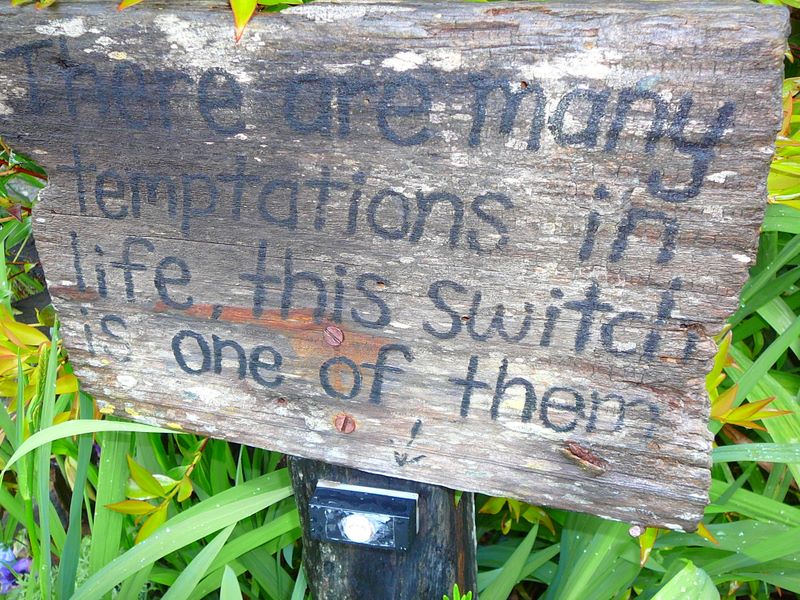 There are many
temptations in
life, this switch
is one of them